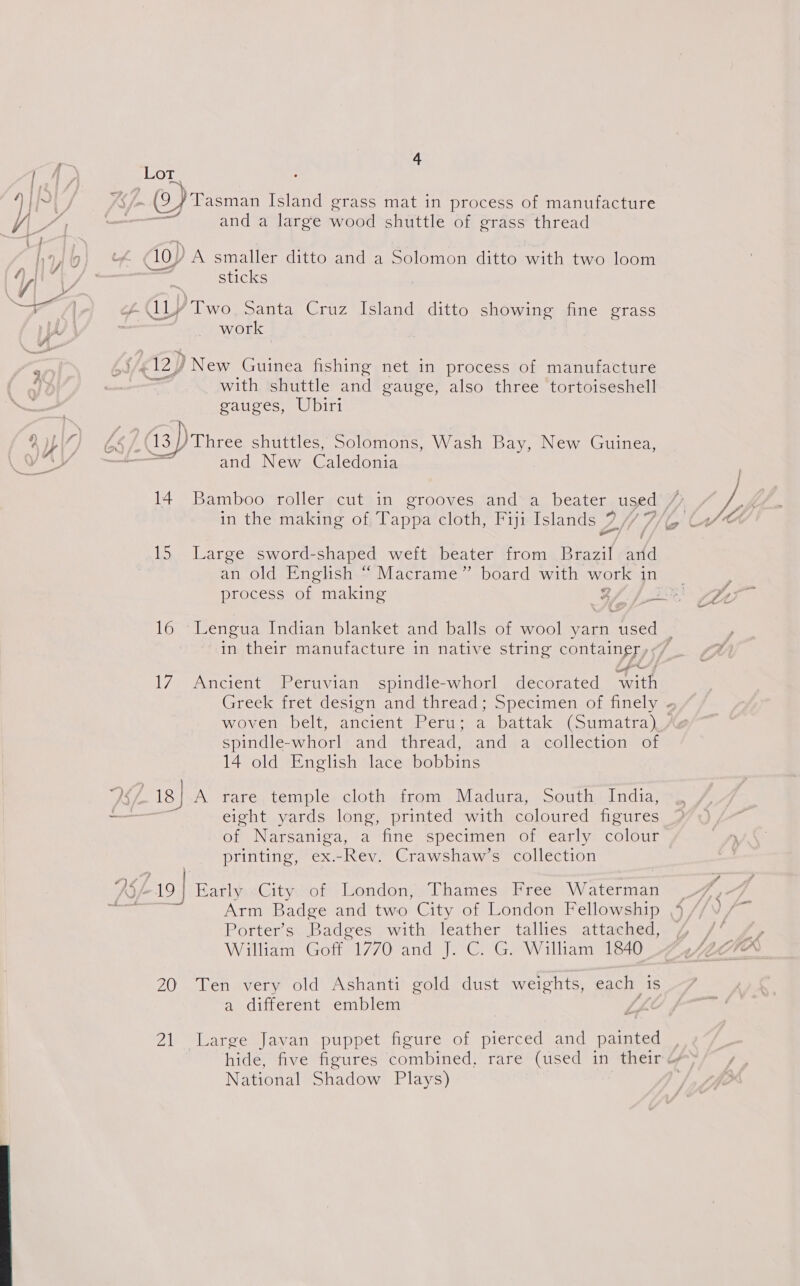 4
Lot
9 Tasman Island grass mat in process of manufacture
and a large wood shuttle of grass thread
10 A smaller ditto and a Solomon ditto with two loom
sticks
11 Two Santa Cruz Island ditto showing fine grass
work
12 New Guinea fishing net in process of manufacture
with shuttle and gauge, also three tortoiseshell
gauges, Ubiri
13 Three shuttles, Solomons, Wash Bay, New Guinea,
and New Caledonia
14 Bamboo roller cut in grooves and a beater used
in the making of Tappa cloth, Fiji Islands
15 Large sword-shaped weft beater from Brazil and
an old English “ Macrame ” board with work in
process of making
16 Lengua Indian blanket and balls of wool yarn used
in their manufacture in native string container
17 Ancient Peruvian spindle-whorl decorated with
Greek fret design and thread; Specimen of finely
woven belt, ancient Peru; a battak (Sumatra)
spindle-whorl and thread, and a collection of
14 old English lace bobbins
18 A rare temple cloth from Madura, South India,
eight yards long, printed with coloured figures
of Narsaniga, a fine specimen of early colour
printing, ex.-Rev. Crawshaw’s collection
19 Early City of London, Thames Free Waterman
Arm Badge and two City of London Fellowship
Porter’s Badges with leather tallies attached,
William Goff 1770 and J. C. G. William 1840
20 Ten very old Ashanti gold dust weights, each is
a different emblem
21 Large Javan puppet figure of pierced and painted
hide, five figures combined, rare (used in their
National Shadow Plays)